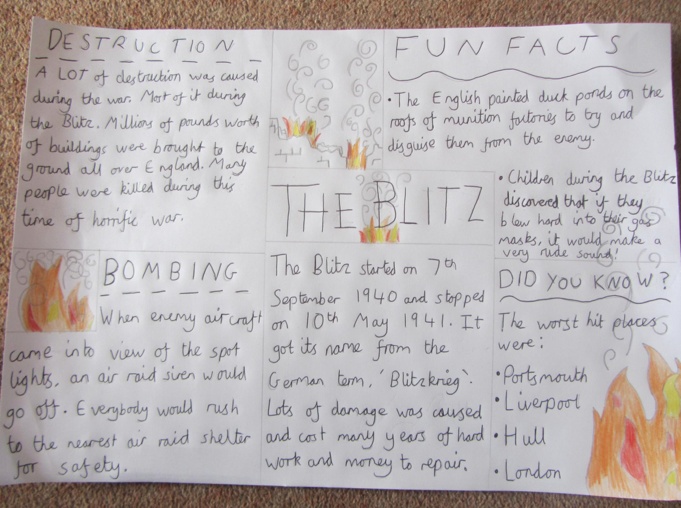 DESTRUCTION
A LOT of destruction was caused
during the war. Most of it during
the Blitz. Millions of pounds worth
of buildings were brought to the
ground all over England. Many
people were killed during this
time of horrific war.
FUN FACTS
• The English painted duck ponds on the
roofs of munition factories to try and
disguise them from the enemy.
• Children during the Blitz
discovered that if they
blew hard into their gas
masks, it would make a
very rude sound!
THE BLITZ
BOMBING
When enemy aircraft
came into view of the spot
lights, an air raid siren would
go off. Everybody would rush
to the nearest air raid shelter
for safety.
The Blitz started on 7th
September 1940 and stopped
on 10th May 1941. It
got its name from the
German term, 'Blitzkrieg'.
Lots of damage was caused
and cost many years of hard
work and money to repair.
DID YOU KNOW?
The worst hit places
were:
• Portsmouth
• Liverpool
• Hull
• London